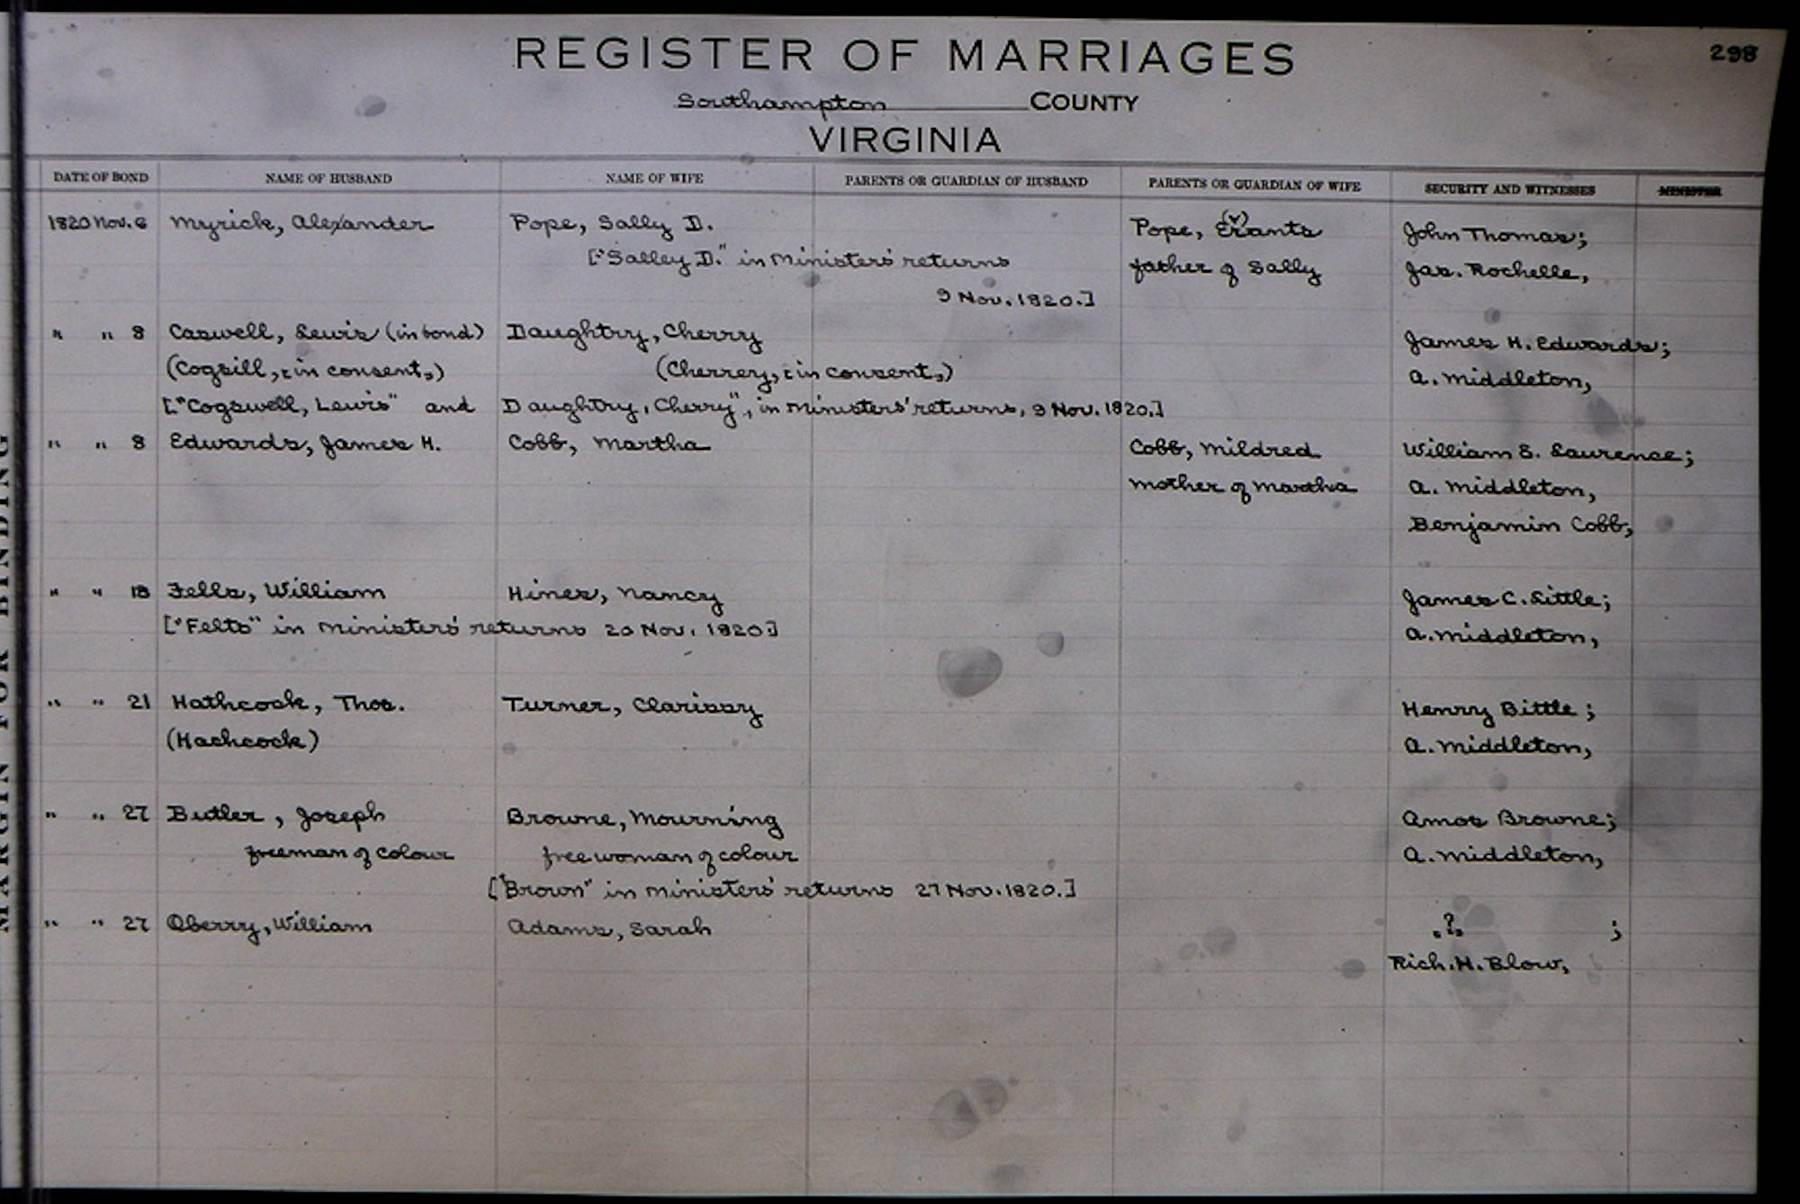 298
REGISTER OF MARRIAGES
Southampton COUNTY
VIRGINIA
DATE OF BOND NAME OF HUSBAND NAME OF WIFE PARENTS OR GUARDIAN OF HUSBAND PARENTS OR GUARDIAN OF WIFE SECURITY AND WITNESSES MINISTER
1820 Nov. 6 Myrick, Alexander Pope, Sally D. Pope, E(v)ants John Thomas;
["Salley D." in Ministers' returns father of Sally Jas. Rochelle,
9 Nov. 1820.]
" " 8 Caswell, Lewis (in bond) Daughtry, Cherry James H. Edwards;
(Cogsill, in consent,) (Cherrey, in consent,) A. Middleton,
["Cogswell, Lewis" and Daughtry, Cherry", in Ministers' returns, 9 Nov. 1820.]
" " 8 Edwards, James H. Cobb, Martha Cobb, Mildred William S. Laurence;
mother of Martha A. Middleton,
Benjamin Cobb,
" " 18 Fells, William Hines, Nancy James C. Little;
["Felts" in Ministers' returns 20 Nov. 1820] A. Middleton,
" " 21 Hathcock, Thos. Turner, Clarissy Henry Bittle;
(Hachcock) A. Middleton,
" " 27 Butler, Joseph Browne, Mourning Amos Browne;
freeman of colour free woman of colour A. Middleton,
["Brown" in Ministers' returns 27 Nov. 1820.]
" " 27 Oberry, William Adams, Sarah ? ;
Rich. H. Blow,
MARGIN FOR BINDING